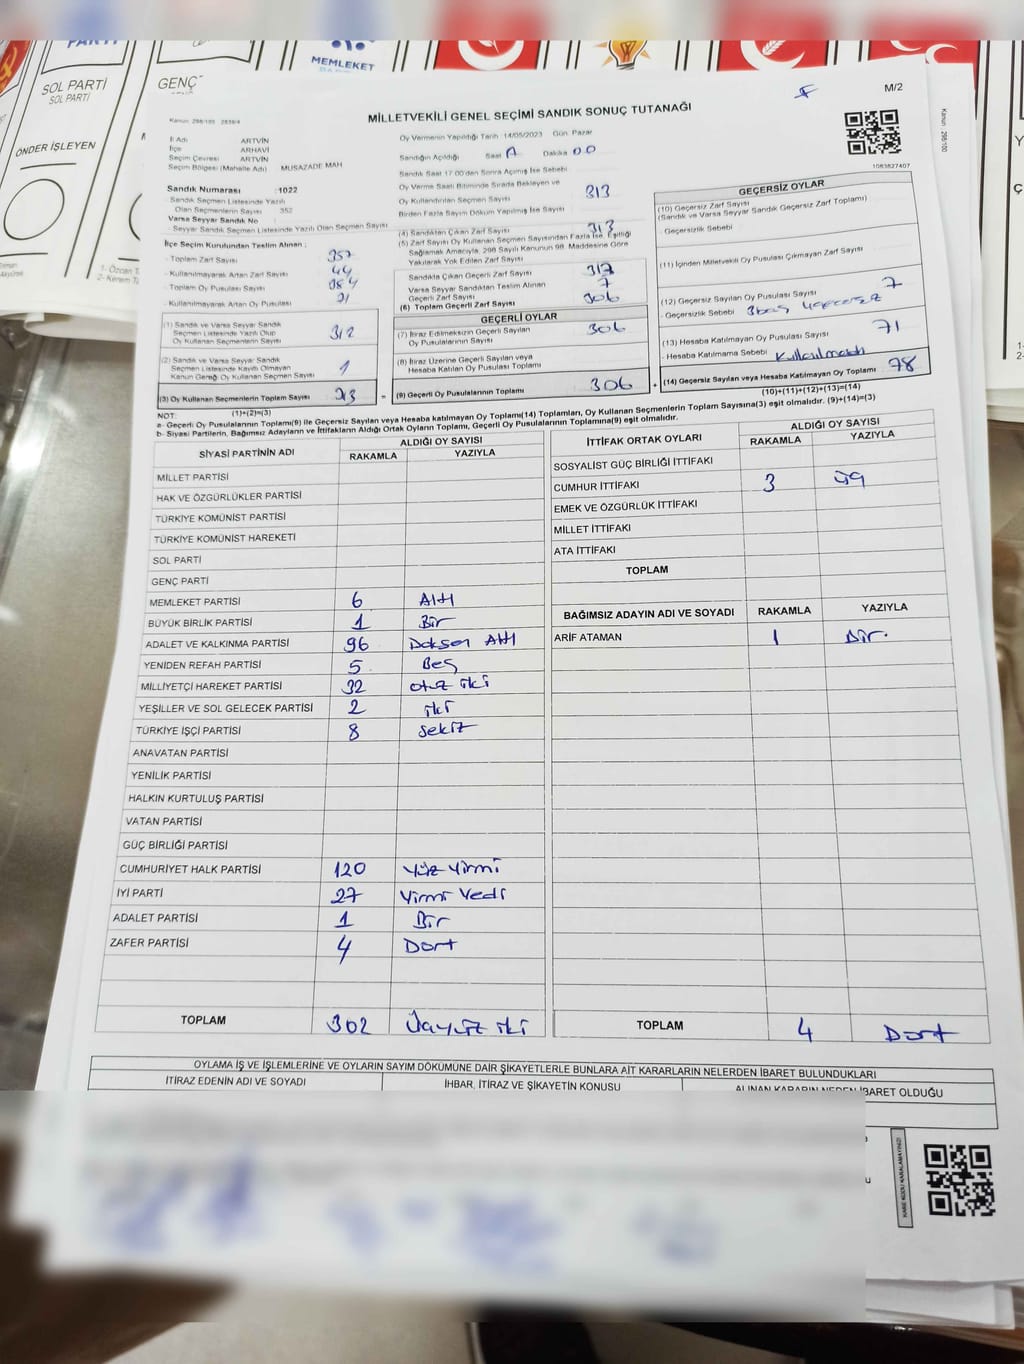 PARTİ
SOL PARTİ
SOL PARTİ
ÖNDER İŞLEYEN
GENÇ
MEMLEKET
M/2
Kanun: 298/100
MİLLETVEKİLİ GENEL SEÇİMİ SANDIK SONUÇ TUTANAĞI
1083827407
İl Adı ARTVİN
İlçe ARHAVİ
Seçim Çevresi ARTVİN
Seçim Bölgesi (Mahalle Adı) MUSAZADE MAH
Sandık Numarası : 1022
Sandık Seçmen Listesinde Yazılı
Olan Seçmenlerin Sayısı 352
Varsa Seyyar Sandık No
Seyyar Sandık Seçmen Listesinde Yazılı Olan Seçmen Sayısı
İlçe Seçim Kurulundan Teslim Alınan ;
Toplam Zarf Sayısı 357
Kullanılmayarak Artan Zarf Sayısı 44
Toplam Oy Pusulası Sayısı 384
Kullanılmayarak Artan Oy Pusulası
(1) Sandık ve Varsa Seyyar Sandık
Seçmen Listesinde Yazılı Olup
Oy Kullanan Seçmenlerin Sayısı 312
(2) Sandık ve Varsa Seyyar Sandık
Seçmen Listesinde Kayıtlı Olmayan
Kanun Gereği Oy Kullanan Seçmen Sayısı 1
(3) Oy Kullanan Seçmenlerin Toplam Sayısı 313
(1)+(2)=(3)
Oy Vermenin Yapıldığı Tarih : 14/05/2023 Gün Pazar
Sandığın Açıldığı Saat Dakika 00
Sandık Saat 17.00'den Sonra Açılmış İse Sebebi
Oy Verme Saati Bitiminde Sırada Bekleyen ve
Oy Kullandırılan Seçmen Sayısı 313
Birden Fazla Sayım Döküm Yapılmış İse Sayısı
(4) Sandıktan Çıkan Zarf Sayısı 313
(5) Zarf Sayısı Oy Kullanan Seçmen Sayısından Fazla İse, Eşitliği
Sağlamak Amacıyla, 298 Sayılı Kanunun 98. Maddesine Göre
Yakılarak Yok Edilen Zarf Sayısı
Sandıkta Çıkan Geçerli Zarf Sayısı
Varsa Seyyar Sandıktan Teslim Alınan
Geçerli Zarf Sayısı 7
(6) Toplam Geçerli Zarf Sayısı 306
GEÇERLİ OYLAR
(7) İtiraz Edilmeksizin Geçerli Sayılan
Oy Pusulalarının Sayısı 306
(8) İtiraz Üzerine Geçerli Sayılan veya
Hesaba Katılan Oy Pusulası Toplamı
= (9) Geçerli Oy Pusulalarının Toplamı 306 +
GEÇERSİZ OYLAR
(10) Geçersiz Zarf Sayısı
(Sandık ve Varsa Seyyar Sandık Geçersiz Zarf Toplamı)
- Geçersizlik Sebebi
(11) İçinden Milletvekili Oy Pusulası Çıkmayan Zarf Sayısı
(12) Geçersiz Sayılan Oy Pusulası Sayısı 7
- Geçersizlik Sebebi
(13) Hesaba Katılmayan Oy Pusulası Sayısı 71
- Hesaba Katılmama Sebebi Kullanılmadı
(14) Geçersiz Sayılan veya Hesaba Katılmayan Oy Toplamı 78
(10)+(11)+(12)+(13)=(14)
NOT:
a- Geçerli Oy Pusulasının Toplamı(9) ile Geçersiz Sayılan veya Hesaba Katılmayan Oy Toplamı(14) Toplamları, Oy Kullanan Seçmenlerin Toplam Sayısına(3) eşit olmalıdır. (9)+(14)=(3)
b- Siyasi Partilerin, Bağımsız Adayların ve İttifakların Aldığı Ortak Oyların Toplamı, Geçerli Oy Pusulalarının Toplamına(9) eşit olmalıdır.
SİYASİ PARTİNİN ADI ALDIĞI OY SAYISI
RAKAMLA YAZIYLA
MİLLET PARTİSİ
HAK VE ÖZGÜRLÜKLER PARTİSİ
TÜRKİYE KOMÜNİST PARTİSİ
TÜRKİYE KOMÜNİST HAREKETİ
SOL PARTİ
GENÇ PARTİ
MEMLEKET PARTİSİ 6 Altı
BÜYÜK BİRLİK PARTİSİ 1 Bir
ADALET VE KALKINMA PARTİSİ 96 Doksan Altı
YENİDEN REFAH PARTİSİ 5 Beş
MİLLİYETÇİ HAREKET PARTİSİ 32 otuz iki
YEŞİLLER VE SOL GELECEK PARTİSİ 2 iki
TÜRKİYE İŞÇİ PARTİSİ 8 sekiz
ANAVATAN PARTİSİ
YENİLİK PARTİSİ
HALKIN KURTULUŞ PARTİSİ
VATAN PARTİSİ
GÜÇ BİRLİĞİ PARTİSİ
CUMHURİYET HALK PARTİSİ 120 Yüz Yirmi
İYİ PARTİ 27 Yirmi Yedi
ADALET PARTİSİ 1 Bir
ZAFER PARTİSİ 4 Dört
TOPLAM 302 Üçyüz iki
İTTİFAK ORTAK OYLARI ALDIĞI OY SAYISI
RAKAMLA YAZIYLA
SOSYALİST GÜÇ BİRLİĞİ İTTİFAKI
CUMHUR İTTİFAKI 3 üç
EMEK VE ÖZGÜRLÜK İTTİFAKI
MİLLET İTTİFAKI
ATA İTTİFAKI
TOPLAM
BAĞIMSIZ ADAYIN ADI VE SOYADI RAKAMLA YAZIYLA
ARİF ATAMAN 1 Bir.
TOPLAM 4 Dört
OYLAMA İŞ VE İŞLEMLERİNE VE OYLARIN SAYIM DÖKÜMÜNE DAİR ŞİKAYETLERLE BUNLARA AİT KARARLARIN NELERDEN İBARET BULUNDUKLARI
İTİRAZ EDENİN ADI VE SOYADI İHBAR, İTİRAZ VE ŞİKAYETİN KONUSU ALINAN KARARIN NEDEN İBARET OLDUĞU